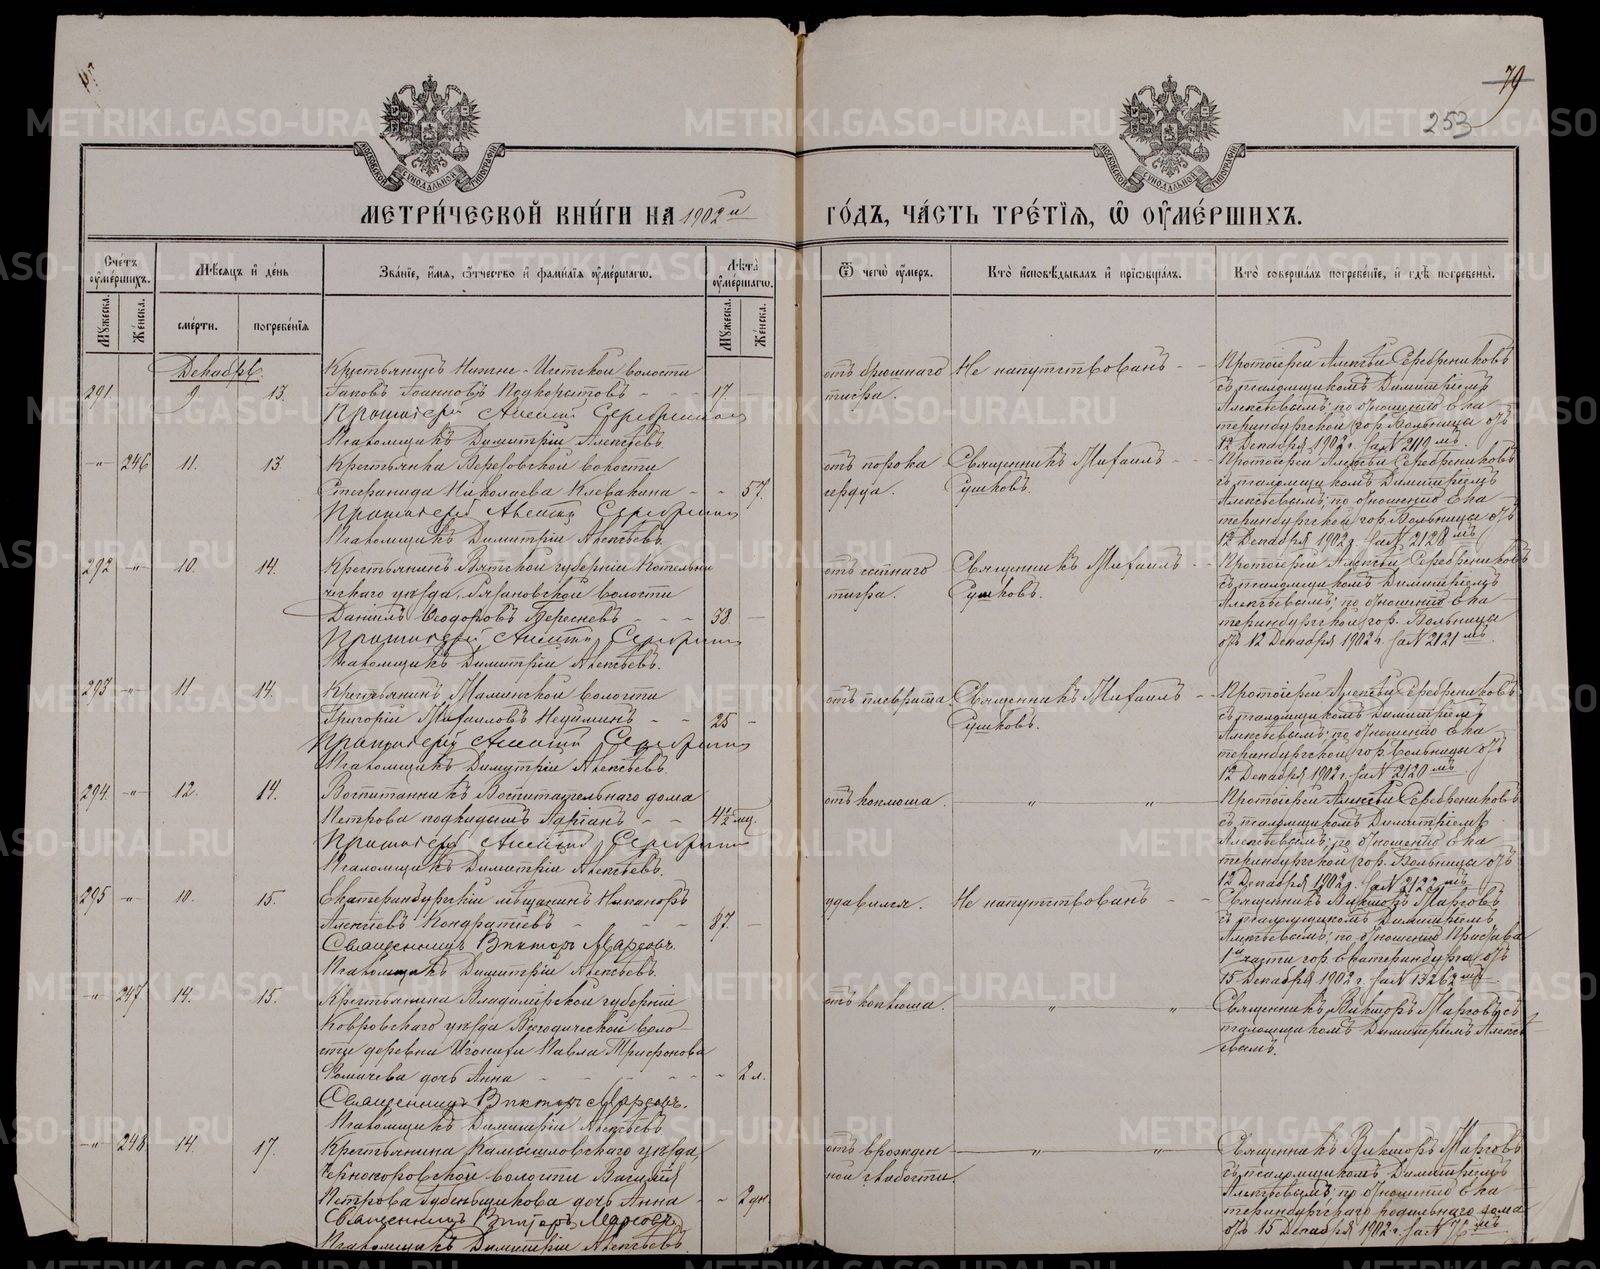 79
253
МЕТРИ́ЧЕСКОЙ КНИ́ГИ НА 1902 й
ГО́ДЪ, ЧА́СТЬ ТРЕ́ТЇѦ, Ѡ ОУ҆МЕ́РШИХЪ.
Сче́тъ оу҆ме́ршихъ.
Мѣ́сѧцъ и҆ де́нь
Зва́нїе, и҆́мѧ, ѻ҆́тчество и҆ фами́лїѧ оу҆ме́ршагѡ.
Лѣ́та оу҆ме́ршагѡ.
Ѿ чегѡ̀ оу҆́меръ.
Кто̀ и҆сповѣ́дывалъ и҆ прїѡбща́лъ.
Кто̀ соверша́лъ погребе́нїе, и҆ гдѣ̀ погребены̀.
Му́жеска.
Же́нска.
сме́рти.
погребе́нїѧ
Му́жеска.
Же́нска.
Декабрь.
291. 9. 13.
Крестьянинъ Нижне-Исетской волости
Іаковъ Іоанновъ Подкорытовъ - - - 17.
Протоіерей Алексій Серебренников
Псаломщикъ Димитрій Алексѣевъ.
отъ брюшнаго
тифа.
Не напутствованъ - -
Протоіерей Алексѣй Серебрениковъ
съ псаломщикомъ Димитріемъ
Алексѣевымъ; по отношенію Ека
теринбургской гор. Больницы отъ
12 Декабря 1902 г. за N 2119 мъ.
-"- 246 11. 13.
Крестьянка Березовской волости
Стефанида Николаева Клевакина - - 57.
Протоіерей Алексій Серебренников
Псаломщикъ Димитрій Алексѣевъ.
отъ порока
сердца.
Священникъ Михаилъ - -
Сушковъ.
Протоіерей Алексѣй Серебрениковъ
съ псаломщикомъ Димитріемъ
Алексѣевымъ; по отношенію Ека
теринбургской гор. Больницы отъ
12 Декабря 1902 г. за N 2128 мъ
292 -"- 10. 14.
Крестьянинъ Вятской губерніи Котельни
ческаго уѣзда, волости
Даніилъ Ѳеодоровъ Бересневъ - - - 38. -
Протоіерей Алексій Серебренников
Псаломщикъ Димитрій Алексѣевъ.
отъ сыпнаго
тифа.
Священникъ Михаилъ - -
Сушковъ.
Протоіерей Алексѣй Серебрениковъ
съ псаломщикомъ Димитріемъ
Алексѣевымъ; по отношенію Ека
теринбургской гор. Больницы
отъ 12 Декабря 1902 г. за N 2121 мъ.
293 -"- 11 14.
Крестьянинъ Таминской волости
Григорій Михаиловъ Неуйминъ - - 25 -
Протоіерей Алексій Серебренников
Псаломщикъ Димитрій Алексѣевъ.
отъ плеврита.
Священникъ Михаилъ -
Сушковъ.
Протоіерей Алексѣй Серебрениковъ
съ псаломщикомъ Димитріемъ
Алексѣевымъ; по отношенію Ека
теринбургской гор. Больницы отъ
12 Декабря 1902 г. за N 2120 мъ
294. -"- 12. 14.
Воспитанникъ Воспитательнаго дома
Петрова подкидышъ Адріанъ - - 4½ мц.
Протоіерей Алексій Серебренников
Псаломщикъ Димитрій Алексѣевъ.
отъ коклюша. " "
Протоіерей Алексѣй Серебрениковъ
съ псаломщикомъ Димитріемъ
Алексѣевымъ; по отношенію Ека
теринбургской гор. Больницы отъ
12 Декабря 1902 г. за N 2122 мъ
295 -"- 10. 15.
Екатеринбургскій мѣщанинъ Никаноръ
Алексѣевъ Кондратьевъ - - - - 87. -
Священникъ Викторъ Марсовъ.
Псаломщикъ Димитрій Алексѣевъ.
удавился.
Не напутствованъ - -
Священникъ Викторъ Марсовъ
съ псаломщикомъ Димитріемъ
Алексѣевымъ; по отношенію Пристава
1й части гор. Екатеринбурга отъ
15 Декабря 1902 г. за N 13262 мъ
-"- 247 14. 15.
Крестьянина Владимірской губерніи
Ковровскаго уѣзда Всегодической воло-
сти деревни Игонихи Павла Трифонова
Фомичева дочь Анна - - - - - - 2 л.
Священникъ Викторъ Марсовъ.
Псаломщикъ Димитрій Алексѣевъ
отъ коклюша. " "
Священникъ Викторъ Марсовъ съ
псаломщикомъ Димитріемъ Алексѣ
евымъ.
-"- 248 14. 17.
Крестьянина Камышловскаго уѣзда,
Чернокоровской волости Василія
Петрова Губенщикова дочь Анна - - 2 дн.
Священникъ Викторъ Марсовъ
Псаломщикъ Димитрій Алексѣевъ.
отъ врожден
ной слабости.
" "
Священникъ Викторъ Марсовъ
съ псаломщикомъ Димитріемъ
Алексѣевымъ; по отношенію Ека
теринбургскаго родильнаго дома
отъ 15 Декабря 1902 г. за N 76 мъ
METRIKI.GASO-URAL.RU